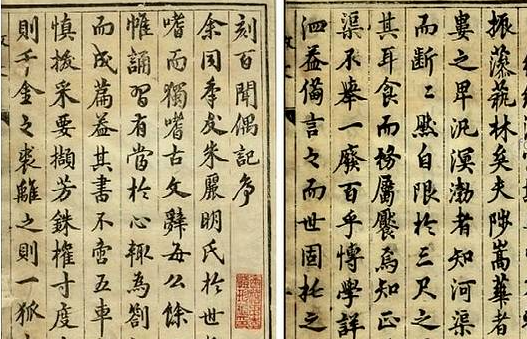 刻百聞偶記序
余同季友朱麗明氏於世
嗜而獨嗜古文辭每公餘
帷誦習有當於心輒為劄
而成篇盖其書不啻五車
慎掇采要擷芳銖權寸度
則千金之裘離之則一狐
振藻蓺林矣夫陟嵩華者
婁之卑汎溟渤者知河渠
而斷〻黙自限於三尺之
其耳食而務屬饜焉知正
渠不舉一廢百乎博學詳
泗盖備言之而世固托之